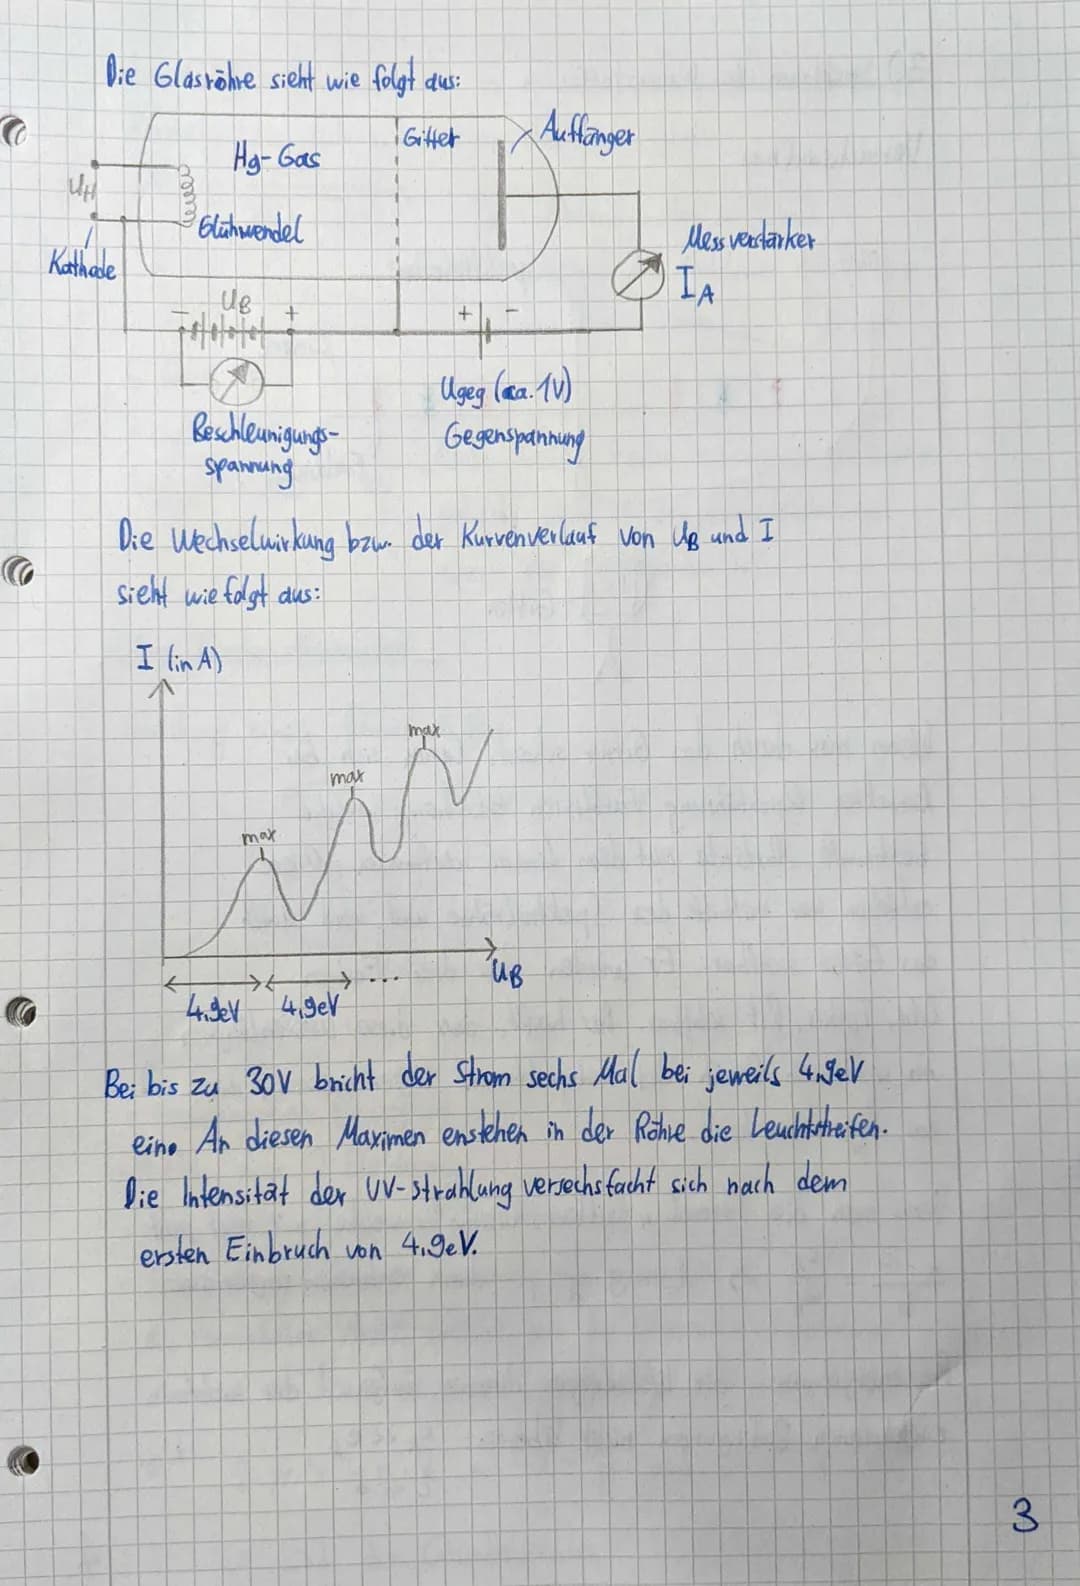 Die Glasröhre sieht wie folgt aus:
Gitter
Auffänger
Hg-Gas
UH
Glühwendel
Kathode
Messverstärker
IA
UB
- +
+ -
Ugeg (ca. 1V)
Gegenspannung
Beschleunigungs-
spannung
Die Wechselwirkung bzw. der Kurvenverlauf von UB und I
sieht wie folgt aus:
I (in A)
max
max
max
...
UB
4,9eV 4,9eV
Bei bis zu 30V bricht der Strom sechs Mal bei jeweils 4,9eV
ein. An diesen Maximen enstehen in der Röhre die Leuchtstreifen.
Die Intensität der UV-Strahlung versechsfacht sich nach dem
ersten Einbruch von 4,9eV.
3